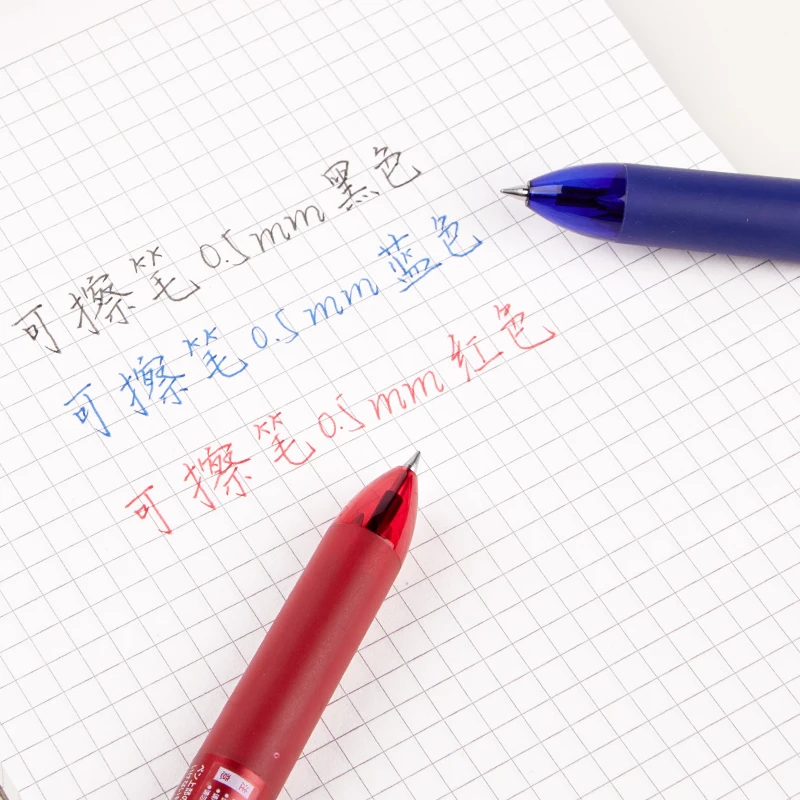 可擦笔 0.5mm 黑色
可擦笔 0.5mm 蓝色
可擦笔 0.5mm 红色
注意